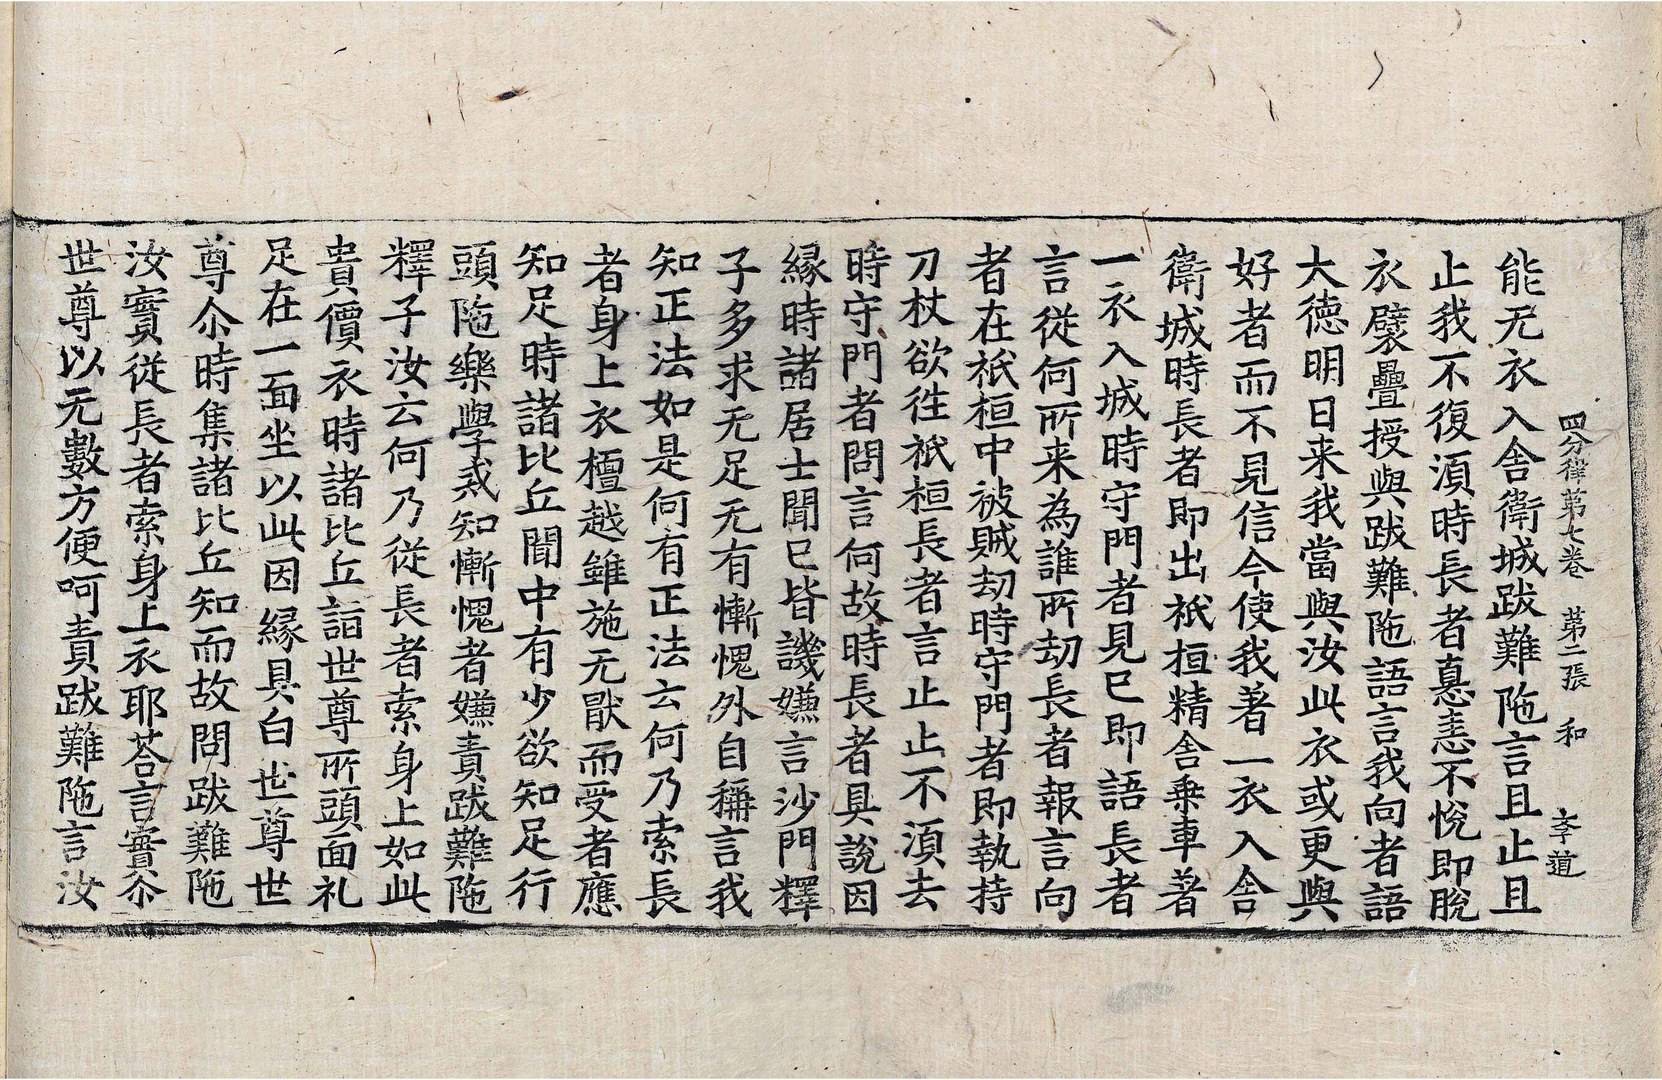 四分律第七卷　第二張　和　李道
能无衣入舍衛城跋難陁言且止且
止我不復湏時長者惪恚不悅即脫
衣襞疊授與跋難陁語言我向者語
大德明日来我當與汝此衣或更與
好者而不見信今使我著一衣入舍
衛城時長者即出祇桓精舍乗車著
一衣入城時守門者見已即語長者
言從何所来為誰所劫長者報言向
者在祇桓中被賊劫時守門者即執持
刀杖欲徃祇桓長者言止止不湏去
時守門者問言何故時長者具說因
緣時諸居士聞已皆譏嫌言沙門釋
子多求无足无有慚愧外自稱言我
知正法如是何有正法云何乃索長
者身上衣檀越雖施无猒而受者應
知足時諸比丘聞中有少欲知足行
頭陁樂學戒知慚愧者嫌責跋難陁
釋子汝云何乃從長者索身上如此
貴價衣時諸比丘詣世尊所頭面礼
足在一面坐以此因緣具白世尊世
尊尒時集諸比丘知而故問跋難陁
汝實從長者索身上衣耶荅言實尒
世尊以无數方便呵責跋難陁言汝